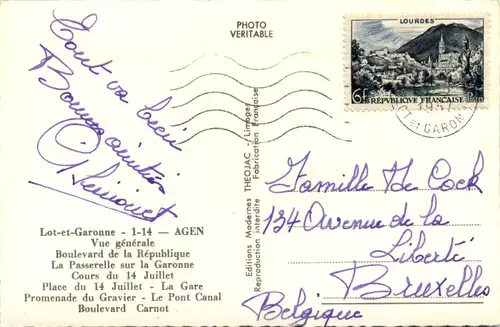 PHOTO
VERITABLE
LOURDES
6F RÉPUBLIQUE FRANÇAISE
1957
ET GARONNE
Tout va bien
Bonnes amitiés
Famille De Cock
134 Avenue de la
Liberté
Bruxelles
Belgique
Editions Modernes THEOJAC - Limoges
Reproduction interdite Fabrication Française
Lot-et-Garonne - 1-14 — AGEN
Vue générale
Boulevard de la République
La Passerelle sur la Garonne
Cours du 14 Juillet
Place du 14 Juillet - La Gare
Promenade du Gravier - Le Pont Canal
Boulevard Carnot